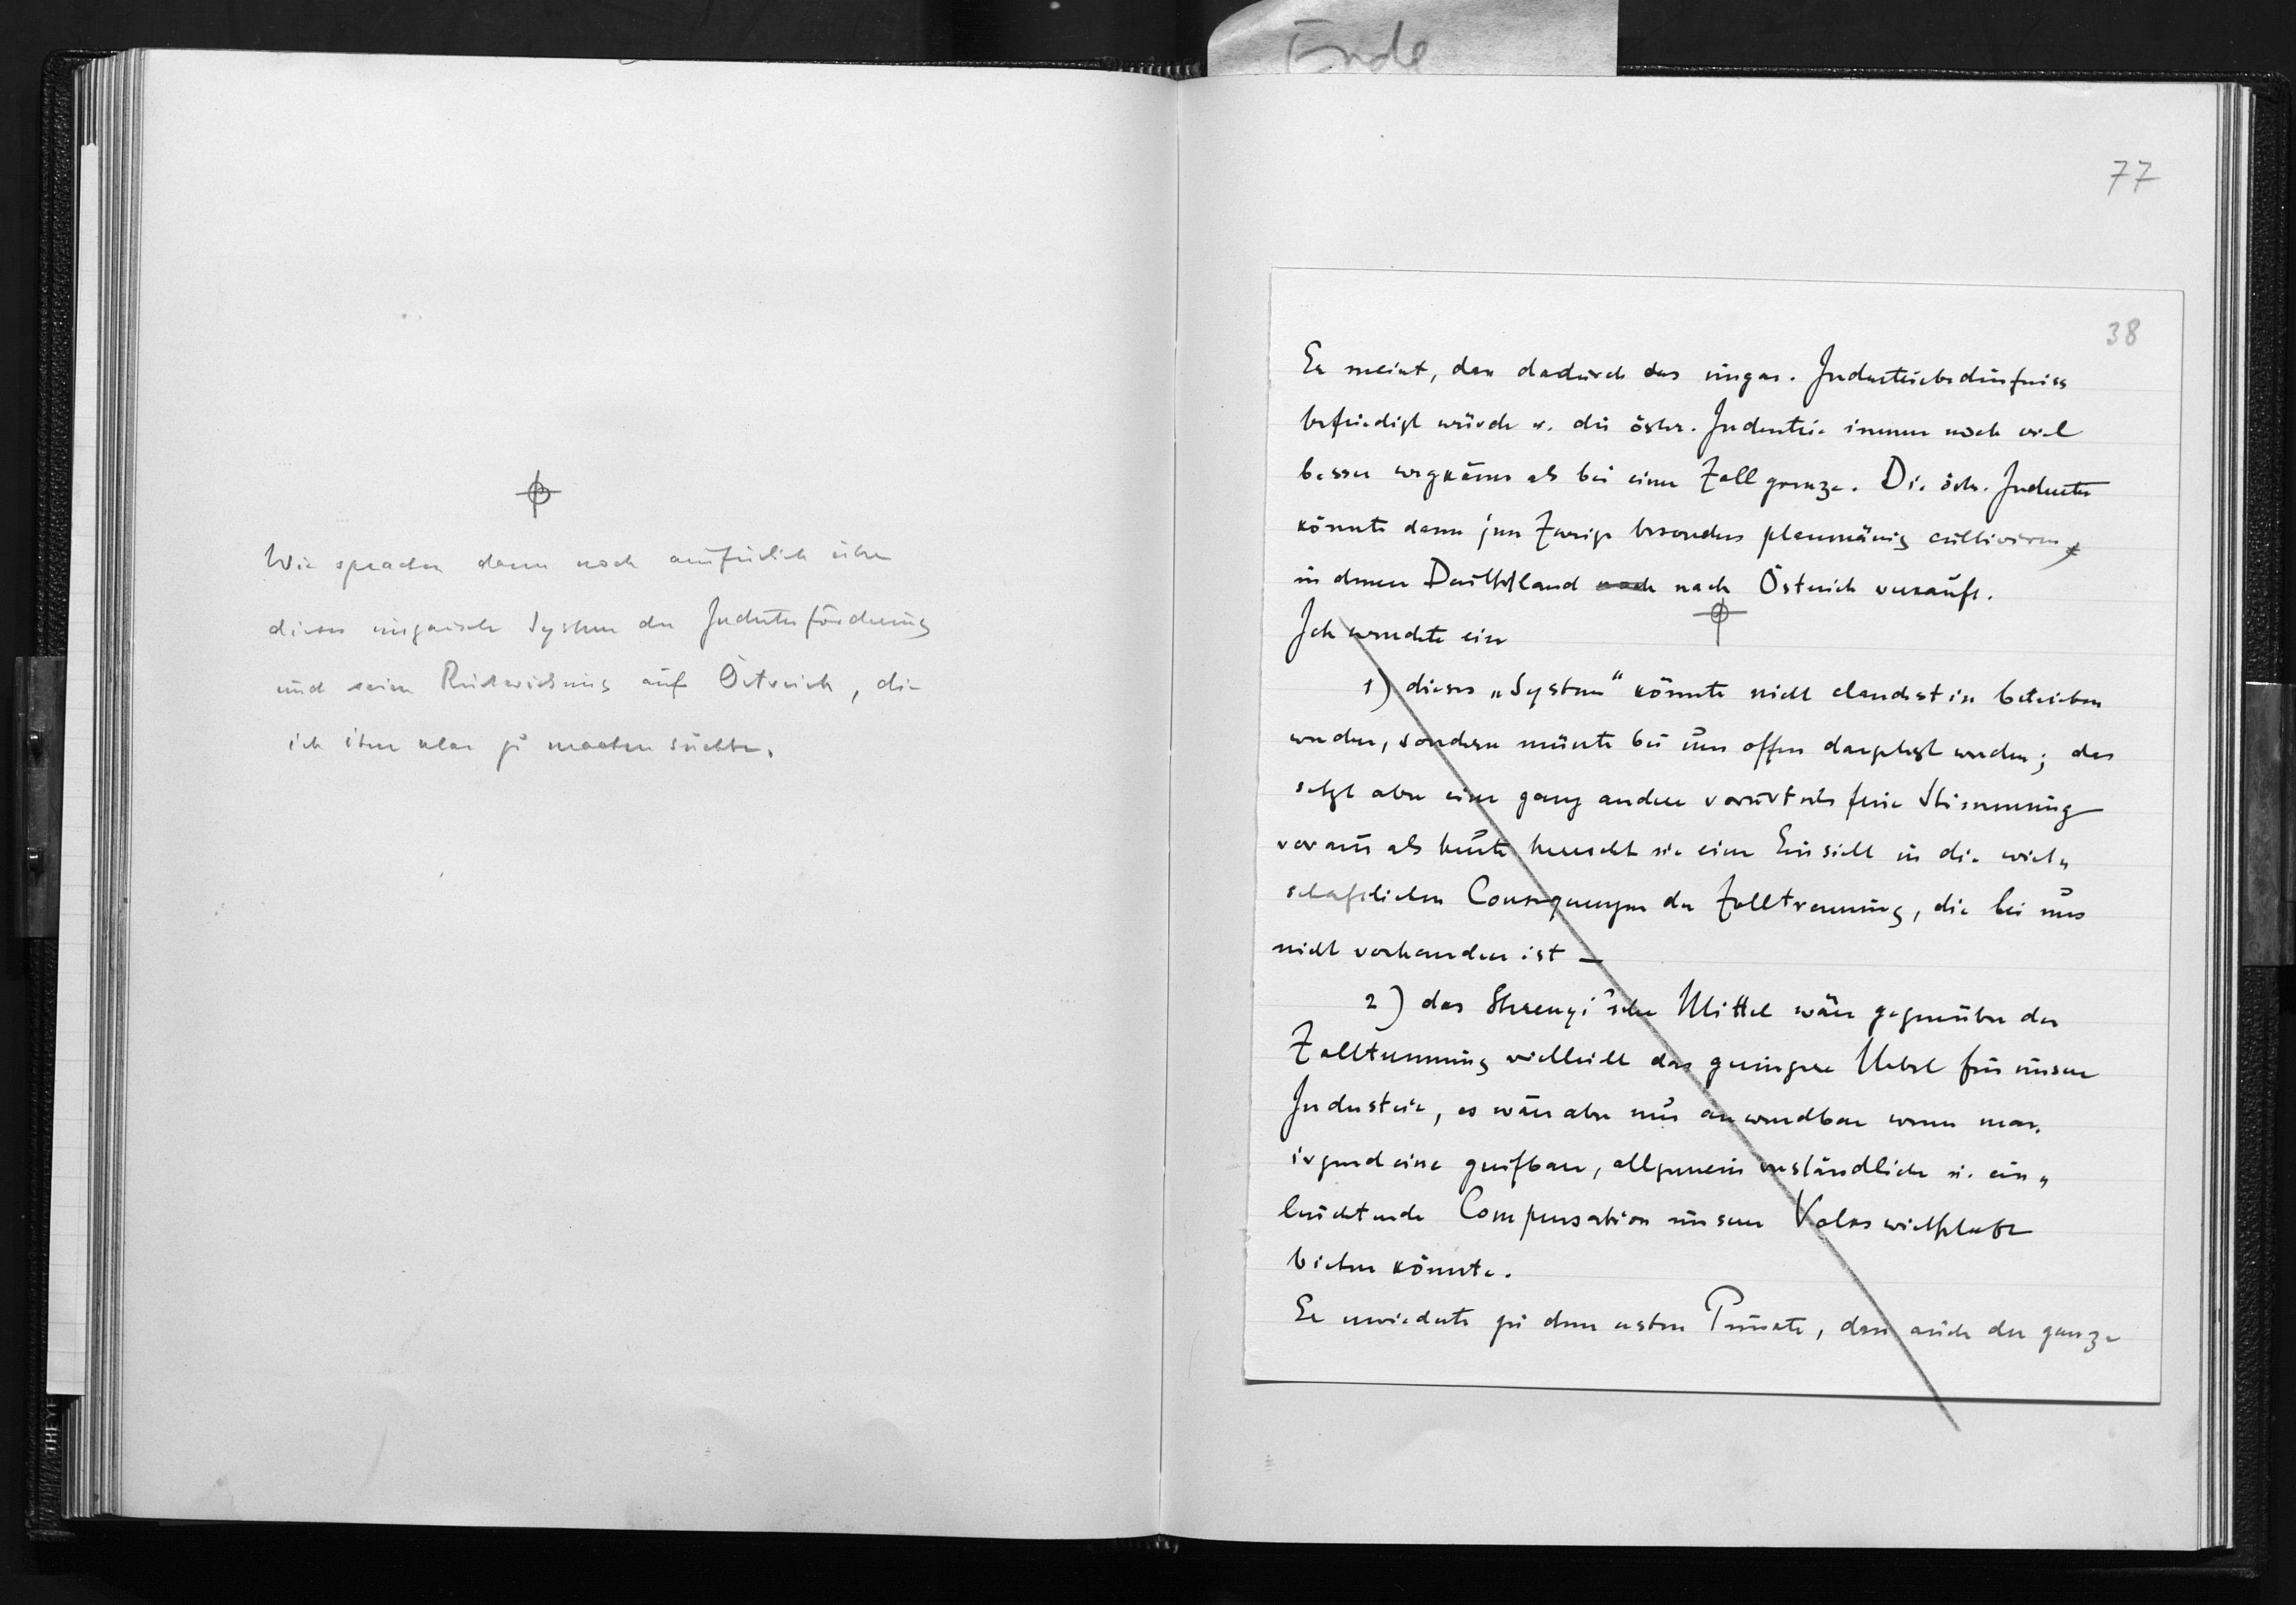 Ende
Wir sprachen dann noch ausfürlich über
dieses ungarische System der Industrieförderung
und seine Rückwirkung auf Östreich, die
ich ihm klar zu machen suchte.
77
38
Er meint, dass dadurch das ungar. Industriebedürfniss
befriedigt würde u. die östr. Industrie immer noch viel
besser wegkäme als bei einer Zollgrenze. Die östr. Industrie
könnte dann jene Zweige besonders planmässig cultiviren,
in denen Deutschland noch nach Östreich verkauft.
Ich wendete ein
1) dieses „System" könnte nicht clandestin betrieben
werden, sondern müsste bei uns offen dargelegt werden; das
setzt aber eine ganz andere vorurteilsfreie Stimmung
voraus als heute herrscht sie eine Einsicht in die wirt„
schaftlichen Consequenzen der Zolltrennung, die bei uns
nicht vorhanden ist –
2) das Sterényi'sche Mittel wäre gegenüber der
Zolltrennung vielleicht das geringere Uebel für unsere
Industrie, es wäre aber nur anwendbar wenn man
irgend eine greifbare, allgemein verständliche u. ein„
leuchtende Compensation unserer Volkswirthschaft
bieten könnte.
Er erwiederte zu dem ersten Punkte, dass auch der ganze